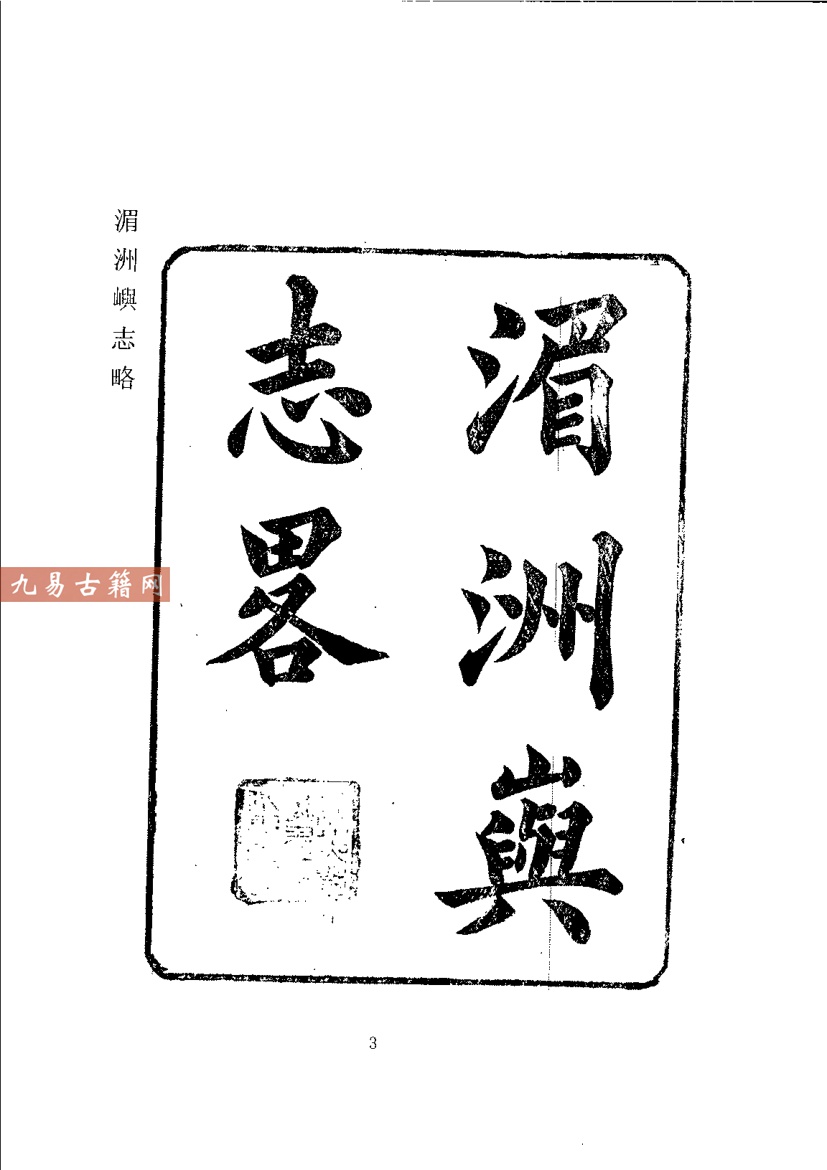 湄洲嶼
志畧
湄洲嶼志略
九易古籍网
3